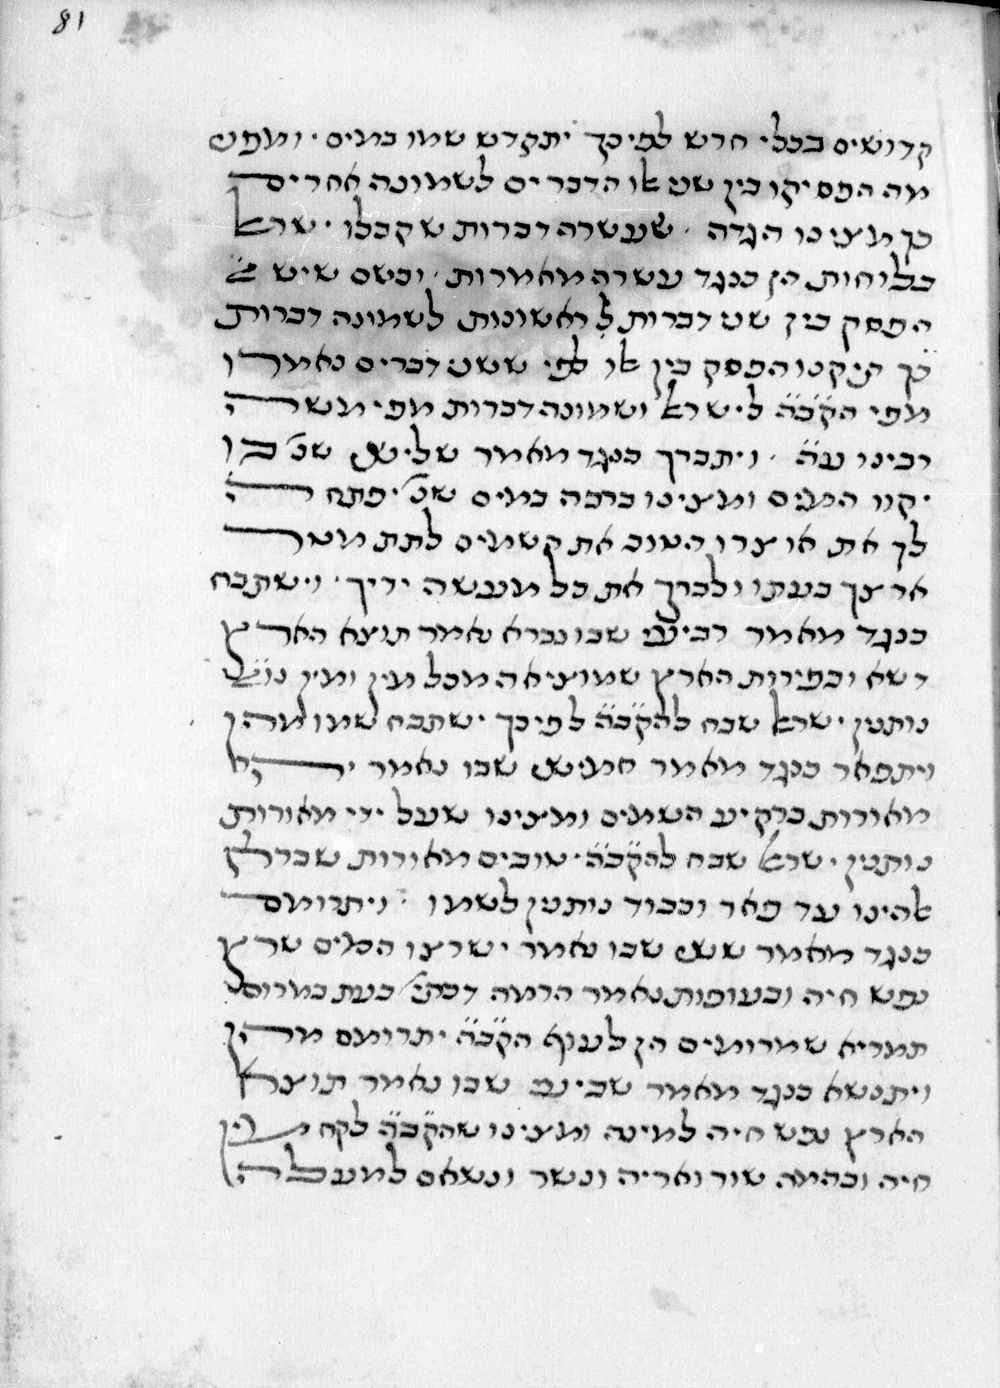 81
קדושים בכלי חרש לפיכך יתקדש שמו במים · ומפני
מה הפסיקו בין שני אלו הדברים לשמונה אחרים
כך מצינו הגדה · שעשרה דברות שקבלו ישראל
בלוחות הן כנגד עשרה מאמרות · וכשם שיש
הפסק בין שני דברות לראשונות לשמונה דברות
כך תיקנו הפסק בין אלו לפי ששני דברים נאמרו
מפי הק֗ב֗ה֗ לישראל ושמונה דברות מפי משה
רבינו ע֗ה֗ · ויתברך כנגד מאמר שלישי שנ׳ בו
יקוו המים ומצינו ברכה במים שנ׳ יפתח ה
לך את אוצרו הטוב את השמים לתת מטר
ארצך בעתו ולברך את כל מעשה ידיך · וישתבח
כנגד מאמר רביעי שבו נברא נאמר תוצא הארץ
דשא ובפירות הארץ שמוציאה מכל מין ומין
נותנין ישראל שבח להק֗ב֗ה֗ לפיכך ישתבח שמו מהן
ויתפאר כנגד מאמר חמישי שבו נאמר יהי
מאורות ברקיע השמים ומצינו שעל ידי מאורות
נותנין ישראל שבח להק֗ב֗ה֗ · טובים מאורות שברא
אלהינו עד פאר וכבוד נותנין לשמו · ויתרומם
כנגד מאמר ששי שבו נאמר ישרצו המים שרץ
נפש חיה ובעופות נאמר הרמה דכתי׳ כעת במרום
תמריא שמרומים הן לעוף הק֗ב֗ה֗ יתרומם מהן
ויתנשא כנגד מאמר שביעי שבו נאמר תוצא
הארץ נפש חיה למינה ומצינו שהק֗ב֗ה֗ לקח מין
חיה ובהמה שור ואריה ונשר ונשאם למעלה